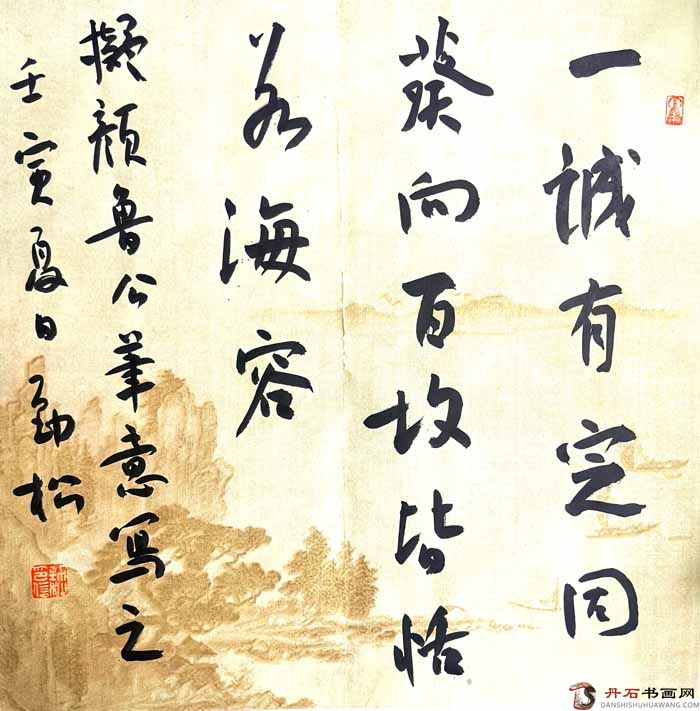 一誠有定同
葵向百故皆恬
若海容
擬顏魯公筆意寫之
壬寅夏日勁松
丹石书画网
DANSHISHUHUAWANG.COM